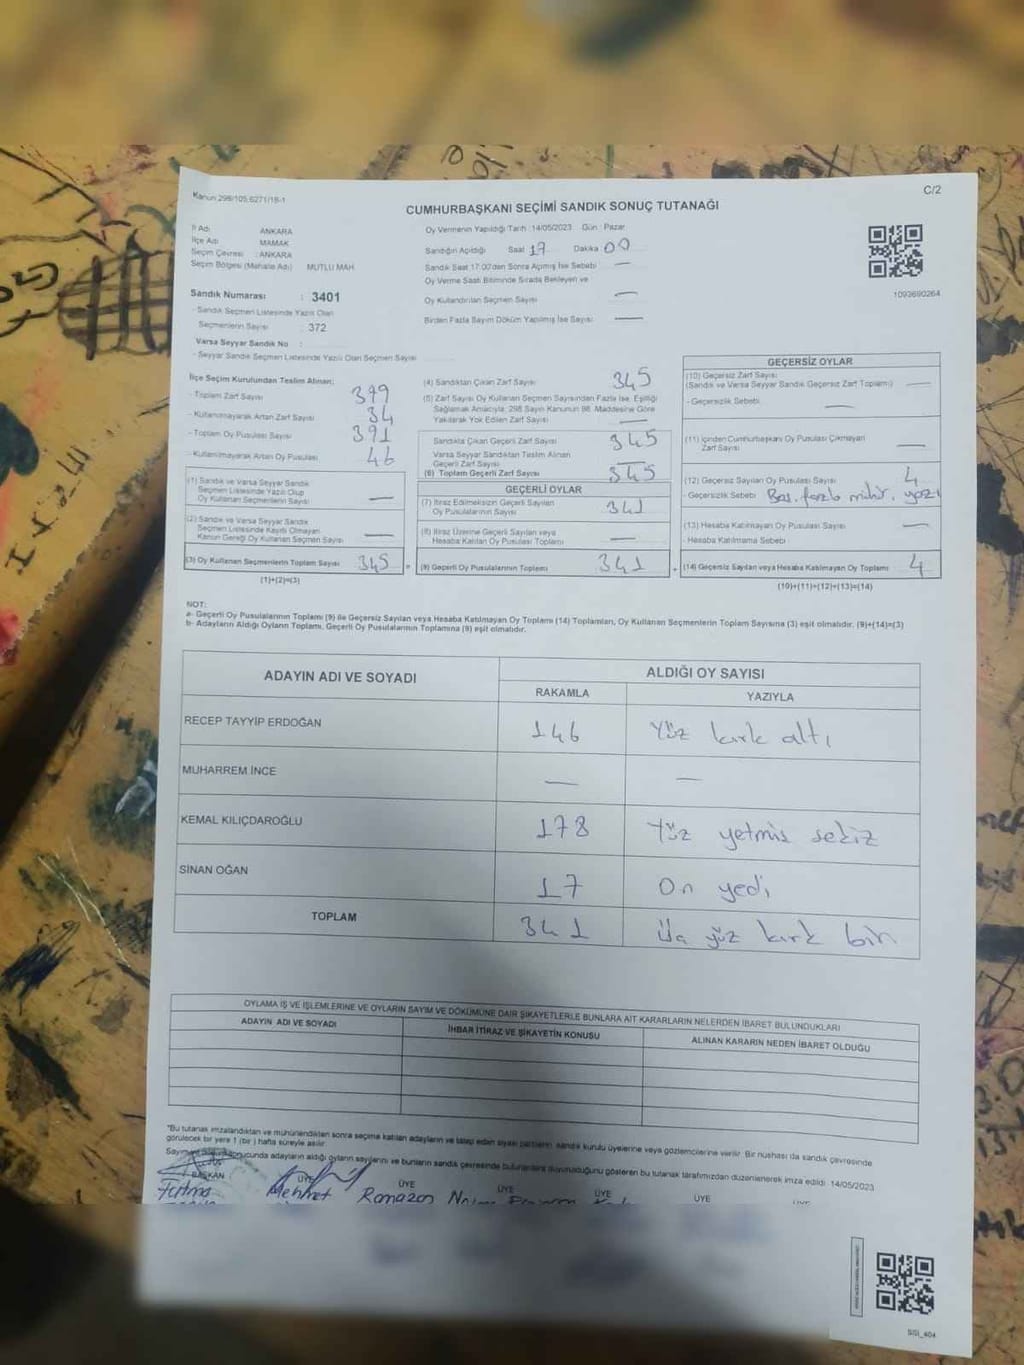 C/2
Kanun:298/105,6271/18-1
CUMHURBAŞKANI SEÇİMİ SANDIK SONUÇ TUTANAĞI
İl Adı : ANKARA
İlçe Adı : MAMAK
Seçim Çevresi : ANKARA
Seçim Bölgesi (Mahalle Adı) : MUTLU MAH
Sandık Numarası : 3401
- Sandık Seçmen Listesinde Yazılı Olan
Seçmenlerin Sayısı : 372
Varsa Seyyar Sandık No :
- Seyyar Sandık Seçmen Listesinde Yazılı Olan Seçmen Sayısı
Oy Vermenin Yapıldığı Tarih :14/05/2023 Gün : Pazar
Sandığın Açıldığı Saat 17 Dakika 00
Sandık Saat 17:00'den Sonra Açılmış İse Sebebi —
Oy Verme Saati Bitiminde Sırada Bekleyen ve
Oy Kullandırılan Seçmen Sayısı —
Birden Fazla Sayım Döküm Yapılmış İse Sayısı —
1093690264
İlçe Seçim Kurulundan Teslim Alınan;
- Toplam Zarf Sayısı 379
- Kullanılmayarak Artan Zarf Sayısı 34
- Toplam Oy Pusulası Sayısı 391
- Kullanılmayarak Artan Oy Pusulası 46
(1) Sandık ve Varsa Seyyar Sandık
Seçmen Listesinde Yazılı Olup
Oy Kullanan Seçmenlerin Sayısı —
(2) Sandık ve Varsa Seyyar Sandık
Seçmen Listesinde Kayıtlı Olmayan
Kanun Gereği Oy Kullanan Seçmen Sayısı —
(3) Oy Kullanan Seçmenlerin Toplam Sayısı 345
(1)+(2)=(3)
(4) Sandıktan Çıkan Zarf Sayısı 345
(5) Zarf Sayısı Oy Kullanan Seçmen Sayısından Fazla İse, Eşitliği
Sağlamak Amacıyla, 298 Sayılı Kanunun 98. Maddesine Göre
Yakılarak Yok Edilen Zarf Sayısı —
Sandıkta Çıkan Geçerli Zarf Sayısı 345
Varsa Seyyar Sandıktan Teslim Alınan
Geçerli Zarf Sayısı —
(6) Toplam Geçerli Zarf Sayısı 345
GEÇERLİ OYLAR
(7) İtiraz Edilmeksizin Geçerli Sayılan
Oy Pusulalarının Sayısı 341
(8) İtiraz Üzerine Geçerli Sayılan veya
Hesaba Katılan Oy Pusulası Toplamı —
(9) Geçerli Oy Pusulalarının Toplamı 341
GEÇERSİZ OYLAR
(10) Geçersiz Zarf Sayısı
(Sandık ve Varsa Seyyar Sandık Geçersiz Zarf Toplamı) —
- Geçersizlik Sebebi —
(11) İçinden Cumhurbaşkanı Oy Pusulası Çıkmayan
Zarf Sayısı —
(12) Geçersiz Sayılan Oy Pusulası Sayısı 4
Geçersizlik Sebebi fazla mühür, yazı
(13) Hesaba Katılmayan Oy Pusulası Sayısı —
- Hesaba Katılmama Sebebi
(14) Geçersiz Sayılan veya Hesaba Katılmayan Oy Toplamı 4
(10)+(11)+(12)+(13)=(14)
NOT:
a- Geçerli Oy Pusulalarının Toplamı (9) ile Geçersiz Sayılan veya Hesaba Katılmayan Oy Toplamı (14) Toplamları, Oy Kullanan Seçmenlerin Toplam Sayısına (3) eşit olmalıdır. (9)+(14)=(3)
b- Adayların Aldığı Oyların Toplamı, Geçerli Oy Pusulalarının Toplamına (9) eşit olmalıdır.
ADAYIN ADI VE SOYADI ALDIĞI OY SAYISI
RAKAMLA YAZIYLA
RECEP TAYYİP ERDOĞAN 146 Yüz kırk altı
MUHARREM İNCE — —
KEMAL KILIÇDAROĞLU 178 Yüz yetmiş sekiz
SİNAN OĞAN 17 On yedi
TOPLAM 341 yüz kırk bir
OYLAMA İŞ VE İŞLEMLERİNE VE OYLARIN SAYIM VE DÖKÜMÜNE DAİR ŞİKAYETLERLE BUNLARA AİT KARARLARIN NELERDEN İBARET BULUNDUKLARI
ADAYIN ADI VE SOYADI İHBAR İTİRAZ VE ŞİKAYETİN KONUSU ALINAN KARARIN NEDEN İBARET OLDUĞU
*Bu tutanak imzalandıktan ve mühürlendikten sonra seçime katılan adayların ve talep eden siyasi partilerin sandık kurulu üyelerine veya gözlemcilerine verilir. Bir nüshası da sandık çevresinde
görülecek bir yere 1 (bir) hafta süreyle asılır.
sonucunda adayların aldığı oyların sayılarını ve bunların sandık çevresinde bulunanlara duyurulduğunu gösteren bu tutanak tarafımızdan düzenlenerek imza edildi. 14/05/2023
BAŞKAN ÜYE ÜYE ÜYE ÜYE ÜYE
Fatma Mehmet Ramazan
SSI_404